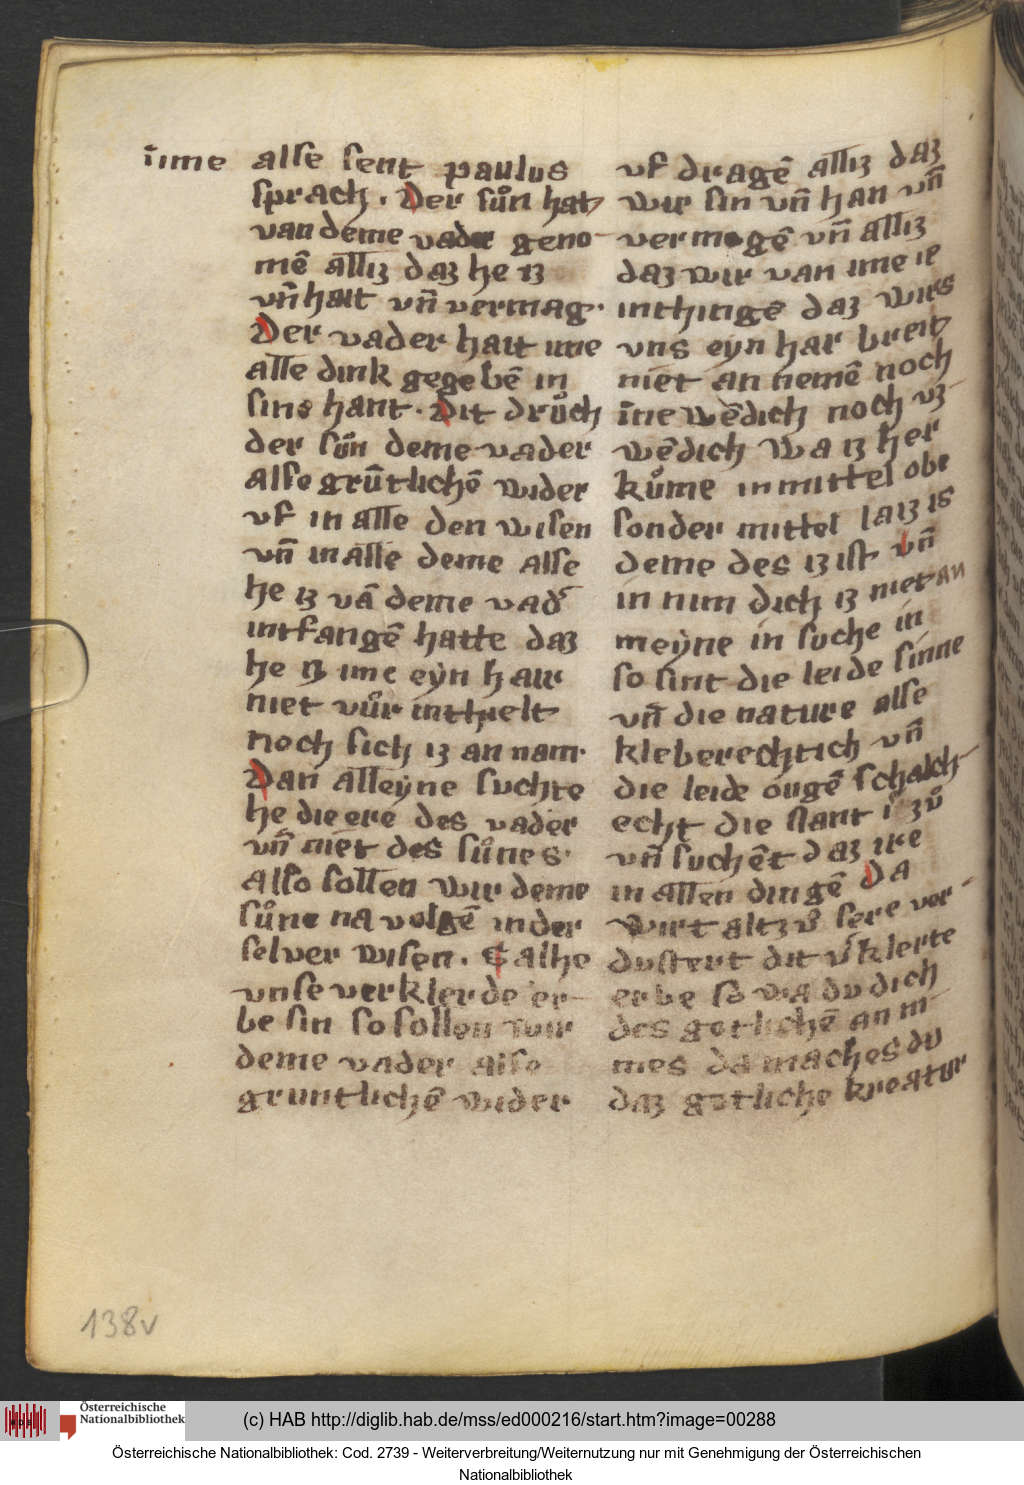 īıme
alse sent paulus
sprach. Der sůn hat
van deme vader geno-
mē alliz daz he iz
vn̄ hait vn̄ vermag.
Der vader hait ime
alle dink gegebē in
sine hant. Dit drůch
der sůn deme vader
also grūtlichē wider
vf in alle den wisen
vn̄ in alle deme alse
he iz vā deme vad͛
intfangē hatte daz
he iz ime eyn hair
niet vůr inthielt
noch sich iz an nam.
Dan alleyne suchte
he die ere des vader
vn̄ niet des sůnes.
Also sollen wir deme
sůne na volgē in der
selver wisen. alhe
vnse verklerde er-
be sin so sollen wir
deme vader alse
gruntlichē wider
vf dragē alliz daz
wir sin vn̄ han vn̄
vermogē vn̄ alliz
daz wir van ime ie
inthingē daz wirs
vns eyn har breit
niet an nemē noch
ine wēdich noch vz-
wēdich wa iz her
kůme in mittel obe
sonder mittel laiz is
deme des iz ist vn̄
in nim dich iz niet an
meyne in suche in
so sint die leide sinne
vn̄ die nature alse
kleberechtich vn̄
die leide ougē schalch-
echt die stant i͛ zů
vn̄ suchēt daz ire
in allen dingē Da
wirt altzů sere ver-
dustert dit v͛klerte
erbe so wa du dich
des gotlichē an ni-
mes da maches du
daz gotliche kreatur
138v
Österreichische
Nationalbibliothek
(c) HAB http://diglib.hab.de/mss/ed000216/start.htm?image=00288
Österreichische Nationalbibliothek: Cod. 2739 - Weiterverbreitung/Weiternutzung nur mit Genehmigung der Österreichischen
Nationalbibliothek